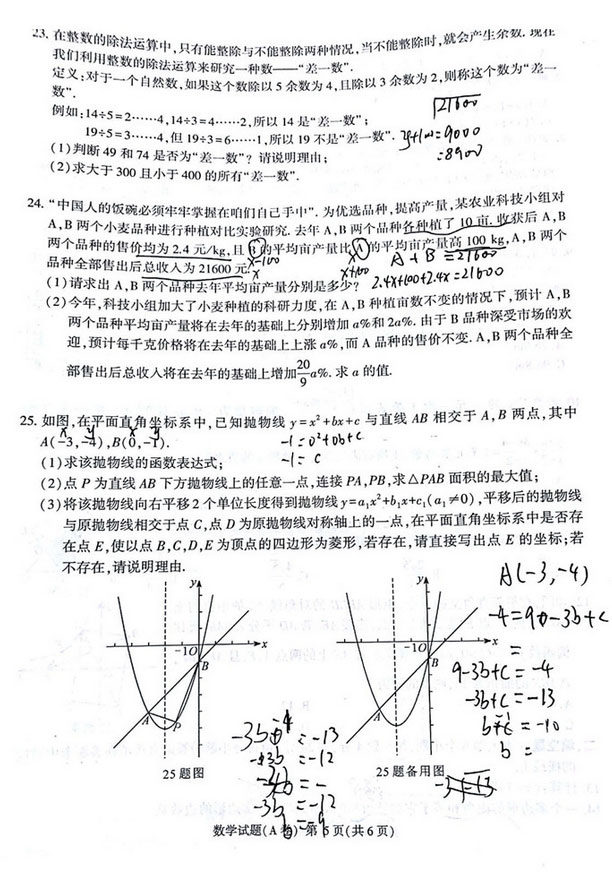 23. 在整数的除法运算中,只有能整除与不能整除两种情况,当不能整除时,就会产生余数. 现在
我们利用整数的除法运算来研究一种数——“差一数”.
定义:对于一个自然数,如果这个数除以5余数为4,且除以3余数为2,则称这个数为“差一
数”.
例如:14÷5=2……4,14÷3=4……2,所以14是“差一数”;
19÷5=3……4,但19÷3=6……1,所以19不是“差一数”.
(1)判断49和74是否为“差一数”?请说明理由;
(2)求大于300且小于400的所有“差一数”.
21600
=9000
=8900
24. “中国人的饭碗必须牢牢掌握在咱们自己手中”. 为优选品种,提高产量,某农业科技小组对
A,B两个小麦品种进行种植对比实验研究. 去年A,B两个品种各种植了10亩. 收获后A,B
两个品种的售价均为2.4元/kg,且B的平均亩产量比A的平均亩产量高100 kg,A,B两个
品种全部售出后总收入为21600元.
x-100
x
x
x+100
A+B=21600
(1)请求出A,B两个品种去年平均亩产量分别是多少?
2.4x+100+2.4x=21600
(2)今年,科技小组加大了小麦种植的科研力度,在A,B种植亩数不变的情况下,预计A,B
两个品种平均亩产量将在去年的基础上分别增加a%和2a%. 由于B品种深受市场的欢
迎,预计每千克价格将在去年的基础上上涨a%,而A品种的售价不变. A,B两个品种全
部售出后总收入将在去年的基础上增加20/9a%. 求a的值.
25. 如图,在平面直角坐标系中,已知抛物线y=x²+bx+c与直线AB相交于A,B两点,其中
x y x y
A(-3,-4),B(0,-1).
-1=0²+0b+c
(1)求该抛物线的函数表达式;
-1=c
(2)点P为直线AB下方抛物线上的任意一点,连接PA,PB,求△PAB面积的最大值;
(3)将该抛物线向右平移2个单位长度得到抛物线y=a₁x²+b₁x+c₁(a₁≠0),平移后的抛物线
与原抛物线相交于点C,点D为原抛物线对称轴上的一点,在平面直角坐标系中是否存
在点E,使以点B,C,D,E为顶点的四边形为菱形,若存在,请直接写出点E的坐标;若
不存在,请说明理由.
A(-3,-4)
y
-1 O
x
B
A
P
25题图
y
-1 O
x
B
25题备用图
-4=9a-3b+c
=
9-3b+c=-4
-3b+c=-13
b+c=-10
b=
=-13
=-12
-3b=-12
数学试题(A卷) 第5页(共6页)